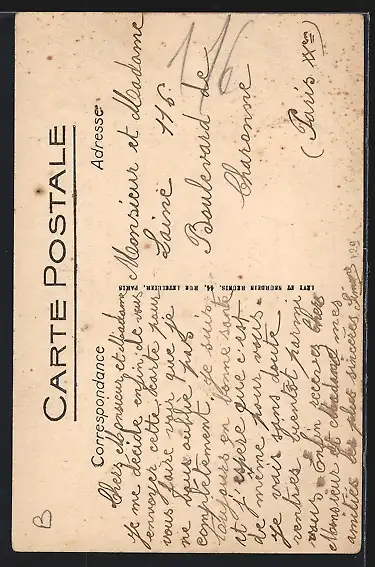 CARTE POSTALE
Correspondance
Adresse
Chers Monsieur et Madame
je me décide enfin de vous
envoyer cette carte pour
vous faire voir que je
ne vous oublie pas
complètement, je suis
toujours en bonne santé
et j'espère que c'est
de même pour vous.
je vais sans doute
ventres bientôt parmi
vous. Enfin recevez chers
Monsieur et Madame mes
amitiés les plus sincères
LÉVY ET NEURDEIN RÉUNIS, 44, RUE LETELLIER, PARIS
16
Monsieur et Madame
Laine 116
Boulevard de
Charonne
(Paris XXe)
B